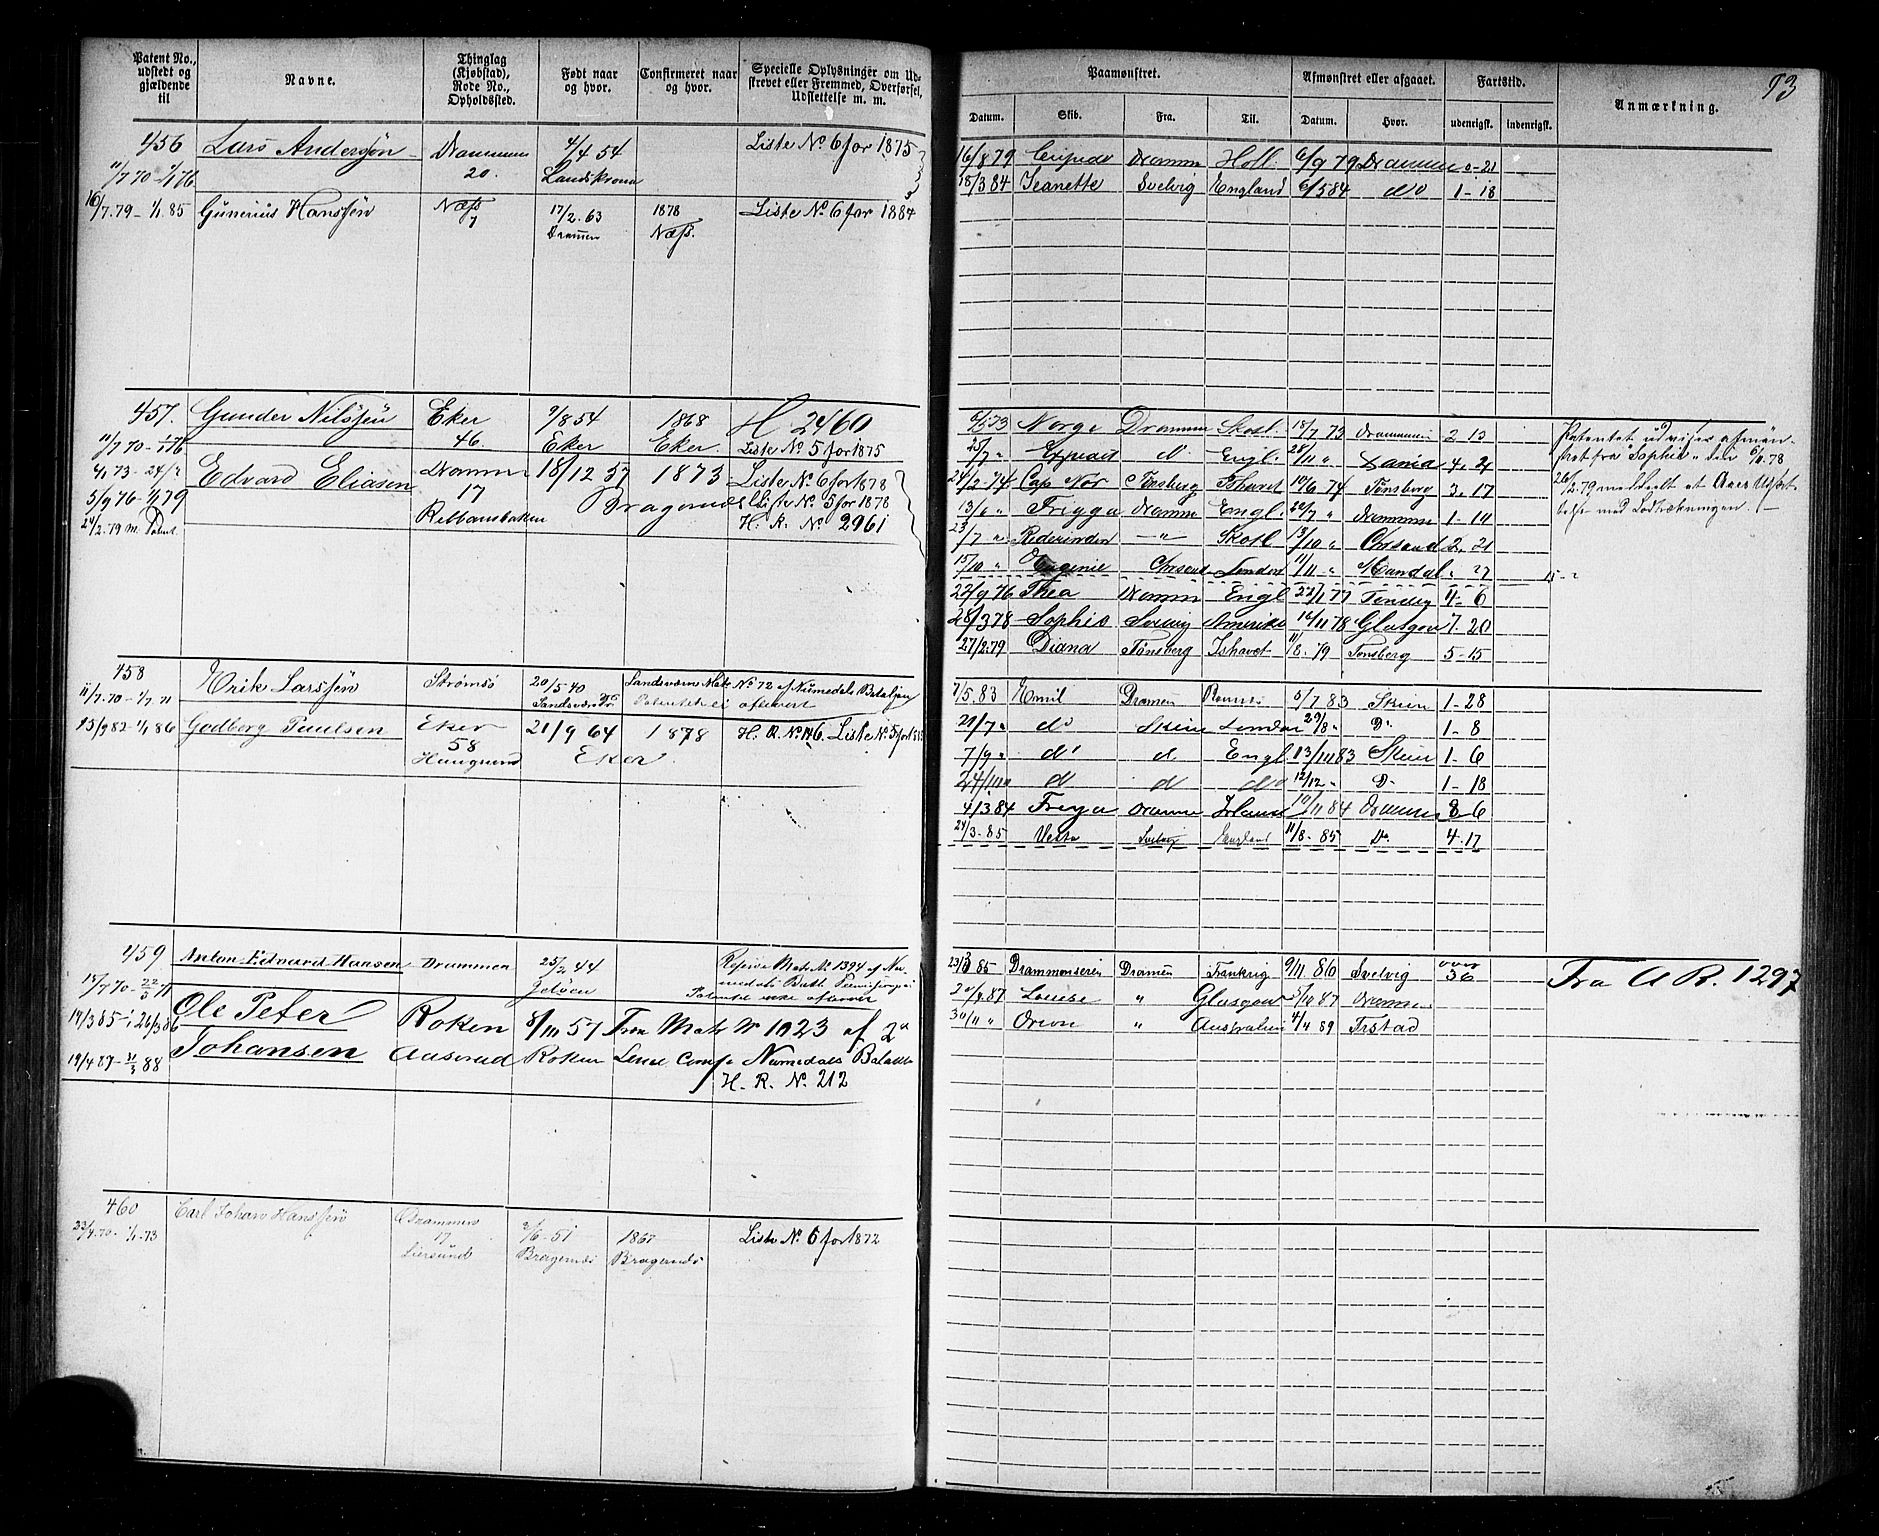 Patent No., udstedt og gjældende til
Navne.
Thinglag (Kjøbstad), Rode No., Opholdssted.
Født naar og hvor.
Confirmeret naar og hvor.
Specielle Oplysninger om Udskrevet eller Fremmed, Overførsel, Udslettelse m. m.
456 Lars Anderssøn Drammen 4/4 54 Liste No. 6 for 1875
11/7 70 - 1/1 76 20. Landskrona
16/7.79 - 1/1.85 Gunerius Hanssøn Næss 17/2.63 1878 Liste No. 6 for 1884
7 Drammen Næss.
457. Gunder Nilssøn Eker 9/8 54 1868 H 2460
11/7 70 - 1/1 76 46 Eker Eker. Liste No. 5 for 1875
Edvard Eliasen Dramm 18/12 57 1873 Liste No. 6 for 1878
5/9 76 - 1/1 79 17 Bragernes Liste No. 5 for 1878
24/2.79 m. Patent. Rebbansbaken H. R. No. 2961
458 Erik Larssøn Strømsø 20/5 40 Landsværn Matr. No. 72 af Numedals Bataljon
11/7.70 - 1/1 71 Sandsvær Patentet ei afleveret
15/9 82 - 1/1 86 Godberg Paulsen Eker 21/9 64 1878 H. R. No. 146. Liste No. 5 for
58 Eker
Haugsund
459 Anton Edvard Hansen Drammen 25/2 44 Reserve Matr. No. 1394 af Numedals Batt.
15/7 70 Jeløen Patentet ikke afleveret
19/3 85 Ole Peter Røken 8/10 57 Fra Matr No 1023 af 2den
19/4 87 - 31/3 88 Johansen Aaserud Røken Linie Comp Numedals Bataillon
H. R. No. 212
460 Carl Johan Hanssøn Drammen 2/6 - 51 1867 Liste No. 6 for 1872
23/4.70 - 1/1 - 73 17 Bragernæs Bragernæs
Liersund
93
Paamønstret.
Afmønstret eller afgaaet.
Fartstid.
Anmærkning.
Datum. Skib. Fra. Til. Datum. Hvor. udenrigst. indenrigst.
16/8 79 Dramm Holl. 6/9 79 Drammen 0 - 21
18/3 84 Jeanette Svelvig England 6/5 84 do 1 - 18
6/5 73 Norge Drammen Skotl. 15/7 73 Drammen 2 13
25/7 " do Engl. 28/11 " 4. 24
24/2 74 Cap Nor Tønsberg Ishavet 10/6 74 Tønsberg 3. 17
13/6 " Frigga Dramm Engl. 20/7 " Drammen 1 - 14
23/7 " Rederinden " Skotl 13/10 " Chrsand 2. 21
15/10 " Eugenie Chrsand London 11/11 " Mandal " 27
22/9 76 Thea Dramm Engl 22/1 77 Tønsberg 4 - 6
28/3 78 Sophie Svelvig Amerika 16/11 78 Glasgow 7. 20
27/2.79 Diana Tønsberg Ishavet 11/8.79 Tønsberg 5 - 15
Patentet udviser afmønstret fra "Sophie" den 6/11.78
26/2.79 meddelt et Aars Udsættelse med Lodtrækningen.
7/5.83 Emil Dramen 5/7 83 Skien 1 - 28
21/7 " do Skien London 29/8 " Do 1 - 8
7/9 " do do Engl 13/10 83 Skien 1 - 6
24/10 do do do 12/12 " Do 1 - 18
4/3 84 Freya Dramm Irland 10/11 84 Drammen 8 6
24/3 - 85 Vesta Svelvig England 11/8 - 85 Do 4. 17
23/3 85 Drammenseren Dramen Frankrig 9/11 86 Svelvig over 36 Fra A R. 1297
20/9.87 Louise " Glasgow 5/10 87 Dramm
30/11 " Orion " Australien 4/4 89 Frstad